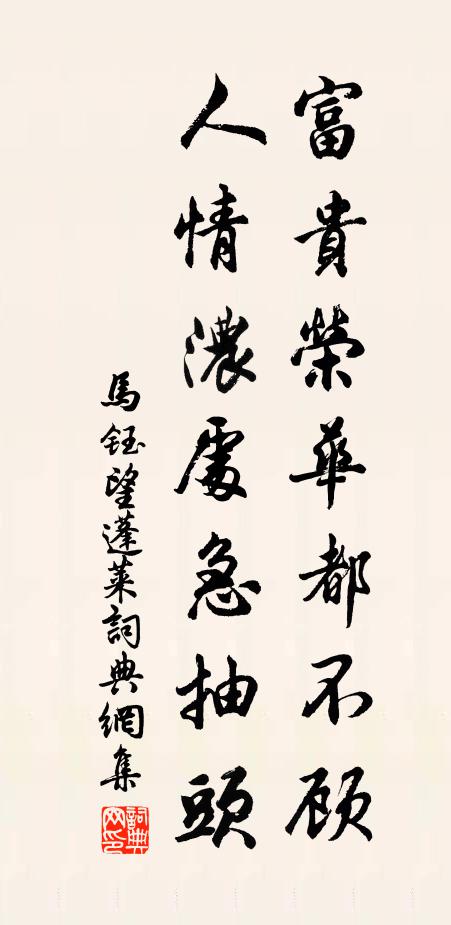 富貴榮華都不顾
人情濃處急抽頭
馬鈺望蓬萊詞典網集
詞典網印